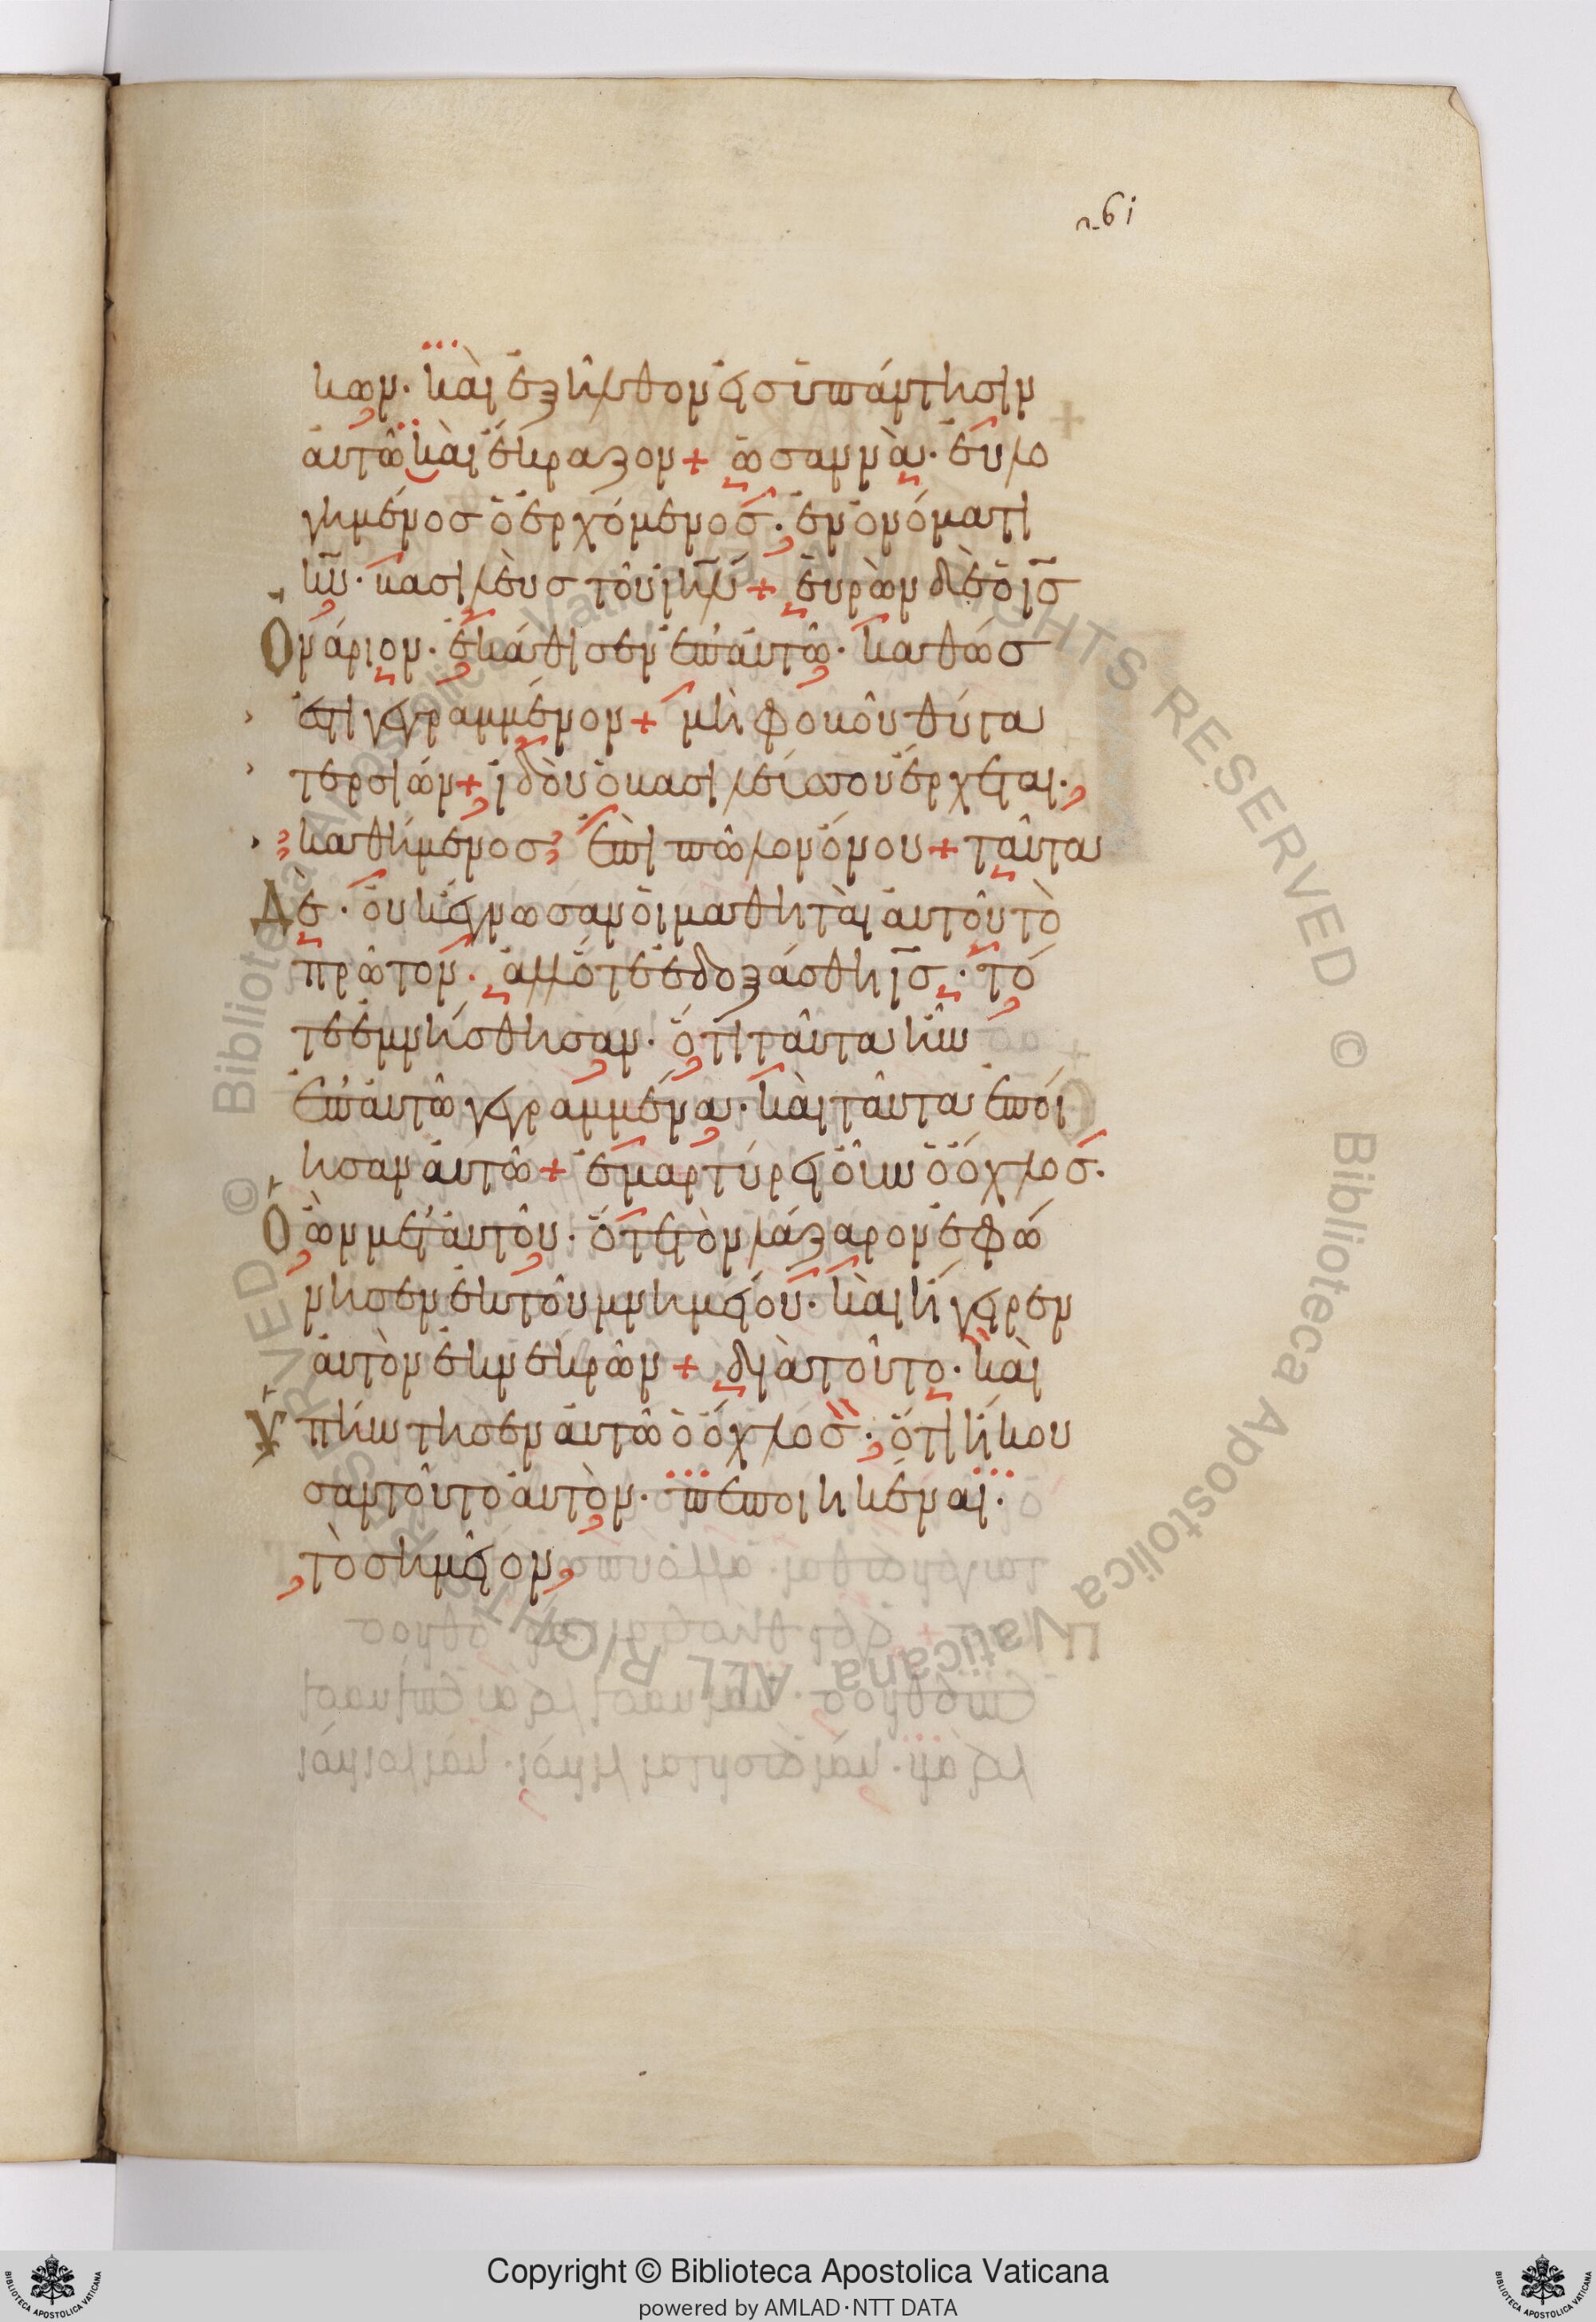 n. 61
κων· καὶ ἐξῆλθον εἰς ὑπάντησιν
αὐτῶ καὶ ἔκραζον + ὡσαννὰ· ἐυλο
γημένος ὁ ἐρχόμενος· ἐν ὀνόματι
κ̅υ̅· βασιλὲυς τοῦ ι̅η̅λ̅ + ἑυρὼν δὲ ὁ ι̅ς̅
Ὀνάριον· ἐκάθισεν ἐπ' αὐτῶ· καθώς
ἐστι γεγραμμένον + μὴ φοβοῦ θύγα
τερ σιών + ἰδοὺ ὁ βασιλεύς σου ἔρχεται·
καθήμενος ἐπὶ πῶλον ὄνου + ταῦτα
Δὲ· οὐκ ἔγνωσαν οἱ μαθηταὶ αὐτοῦ τὸ
πρῶτον· ἀλλ' ὅτε ἐδοξάσθη ι̅ς̅· τό
τε ἐμνήσθησαν· ὅτι ταῦτα ἦν
ἐπ' αὐτῶ γεγραμμένα· καὶ ταῦτα ἐποί
ησαν αὐτῶ + ἐμαρτύρει οὖν ὁ ὄχλος·
Ὁ ὢν μετ' αὐτοῦ· ὅτε τὸν λάζαρον ἐφώ
νησεν ἐκ τοῦ μνημείου· καὶ ἤγειρεν
αὐτὸν ἐκ νεκρῶν + διὰ τοῦτο· καὶ
Ὑπήντησεν αὐτῶ ὁ ὄχλος· ὅτι ἤκου
σαν τοῦτο αὐτὸν· πεποιηκέναι·
τὸ σημεῖον
Copyright © Biblioteca Apostolica Vaticana
powered by AMLAD·NTT DATA